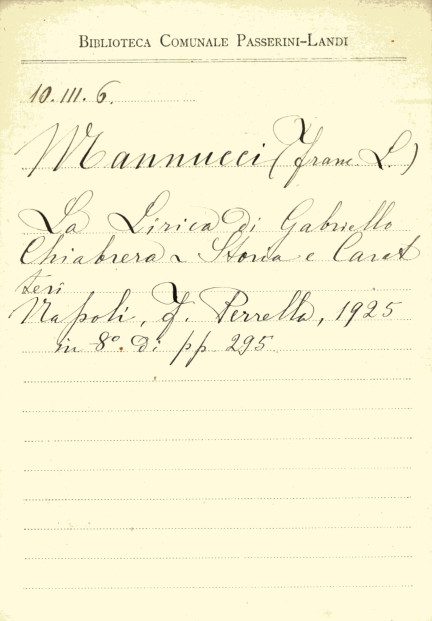 BIBLIOTECA COMUNALE PASSERINI-LANDI
10.III.6.
Mannucci (Franc L.)
La Lirica di Gabriello
Chiabrera - Storia e Carat
teri
Napoli, F. Perrella, 1925
in 8º di pp 295